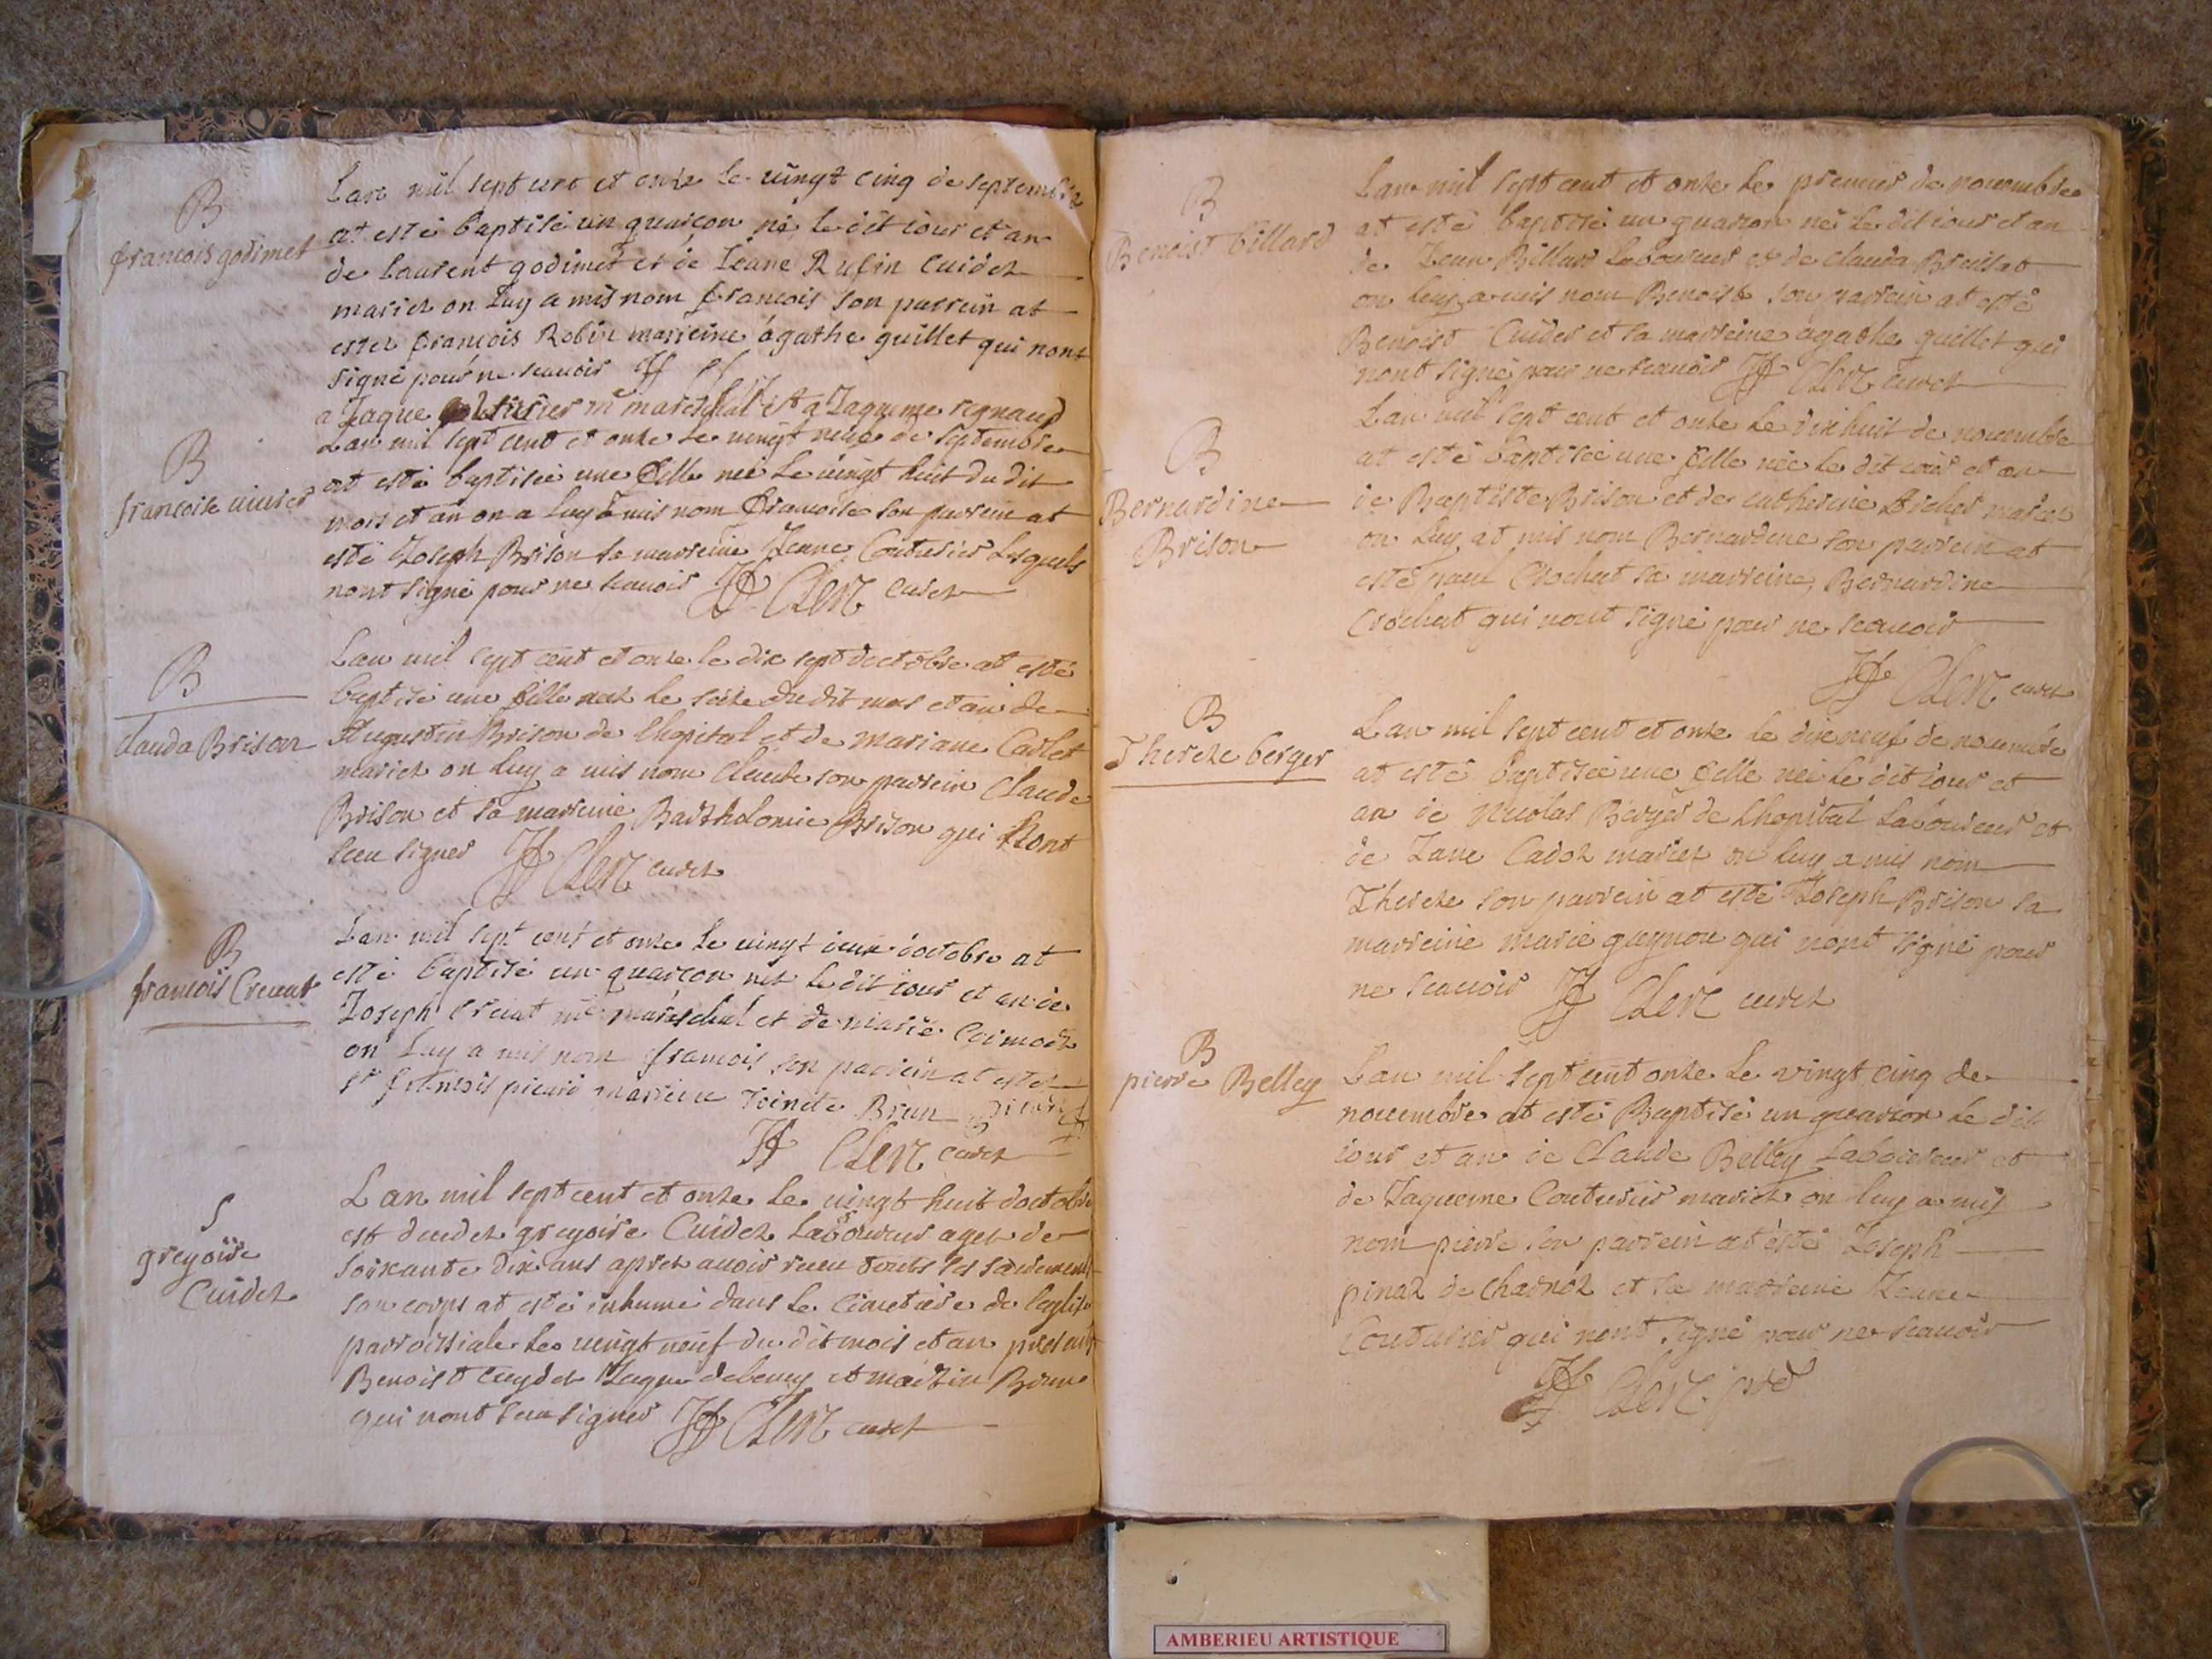 B
francois godimet
Lan mil sept cent et onze le vingt cinq de septembre
at esté baptisé un quarcon né le dit iour et an
de laurent godimet et de Ieane Rufin Cuidez
mariez on luy a mis nom francois son parrein at
estez francois Robin marreine agathe guillet qui nont
signé pour ne scauoir
a Iaque mareschal et a Iaqueme regnaud
B
francoise uiuier
Lan mil sept cent et onze le uingt neuf de septembre
at esté baptisée une fille née le uingt huit du dit
mois et an on a luy a mis nom francoise son parrein at
esté Ioseph Brison sa marreine Ieane Couturier lesquels
nont signé pour ne scauoir Clerc curez
B
clauda Brison
Lan mil sept cent et onze le dix sept doctobre at esté
baptisé une fille nez le seize du dit mois et an de
Augustin Brison de lhopital et de mariane Carlet
mariez on luy a mis nom Clauda son parrein Claude
Brison et sa marreine Bartholomie Brison qui nont
sceu signer Clerc curez
B
francois Creuat
Lan mil sept cent et onze le uingt deux doctobre at
esté baptisé un quarcon nez le dit iour et an de
Ioseph Creuat me mareschal et de marie
on luy a mis nom francois son parrein at estez
sr francois picard marreine Toinete Brun
Clerc curez
S
gregoire
Cuidez
Lan mil sept cent et onze le uingt huit doctobre
est decedez gregoire Cuidez laboureur agez de
soixante dix ans aprez auoir receu touts les sacrements
son corps at esté inhumé dans le cimetiere de leglise
parroissiale le uingt neuf du dit mois et an presents
Benoist cuydez Iaque debeney et martin Brun
qui nont sceu signer Clerc curez
B
Benoist billard
Lan mil sept cent et onze le premier de nouembre
at esté baptisé un quarcon né le dit iour et an
de Iean Billard laboureur et de clauda Bruisat
on luy a mis nom Benoist son parrein at esté
Benoist Cuidez et sa marreine agathe guillet qui
nont signé pour ne scauoir Clerc curez
B
Bernardine
Brison
Lan mil sept cent et onze le dix huit de nouembre
at esté baptisée une fille née le dit iour et an
de Baptiste Brison et de catherine mariez
on luy at mis nom Bernardine son parrein at
esté paul Crochat sa marreine Bernardine
Crochat qui nont signé pour ne scauoir
Clerc curez
B
Thereze berger
Lan mil sept cent et onze le dix neuf de nouembre
at esté baptisée une fille née le dit iour et
an de Nicolas Berger de lhopital laboureur et
de Iane Cadoz mariez on luy a mis nom
Thereze son parrein at esté Ioseph Brison sa
marreine marie gagnon qui nont signé pour
ne scauoir Clerc curez
B
pierre Belley
Lan mil sept cent onze le vingt cinq de
nouembre at esté Baptisé un quarcon le dit
iour et an de Claude Belley laboureur et
de Iaqueme Couturier mariez on luy a mis
nom pierre son parrein at esté Ioseph
pinaz de charnoz et sa marreine Ieane
Couturier qui nont signé pour ne scauoir
Clerc
AMBERIEU ARTISTIQUE